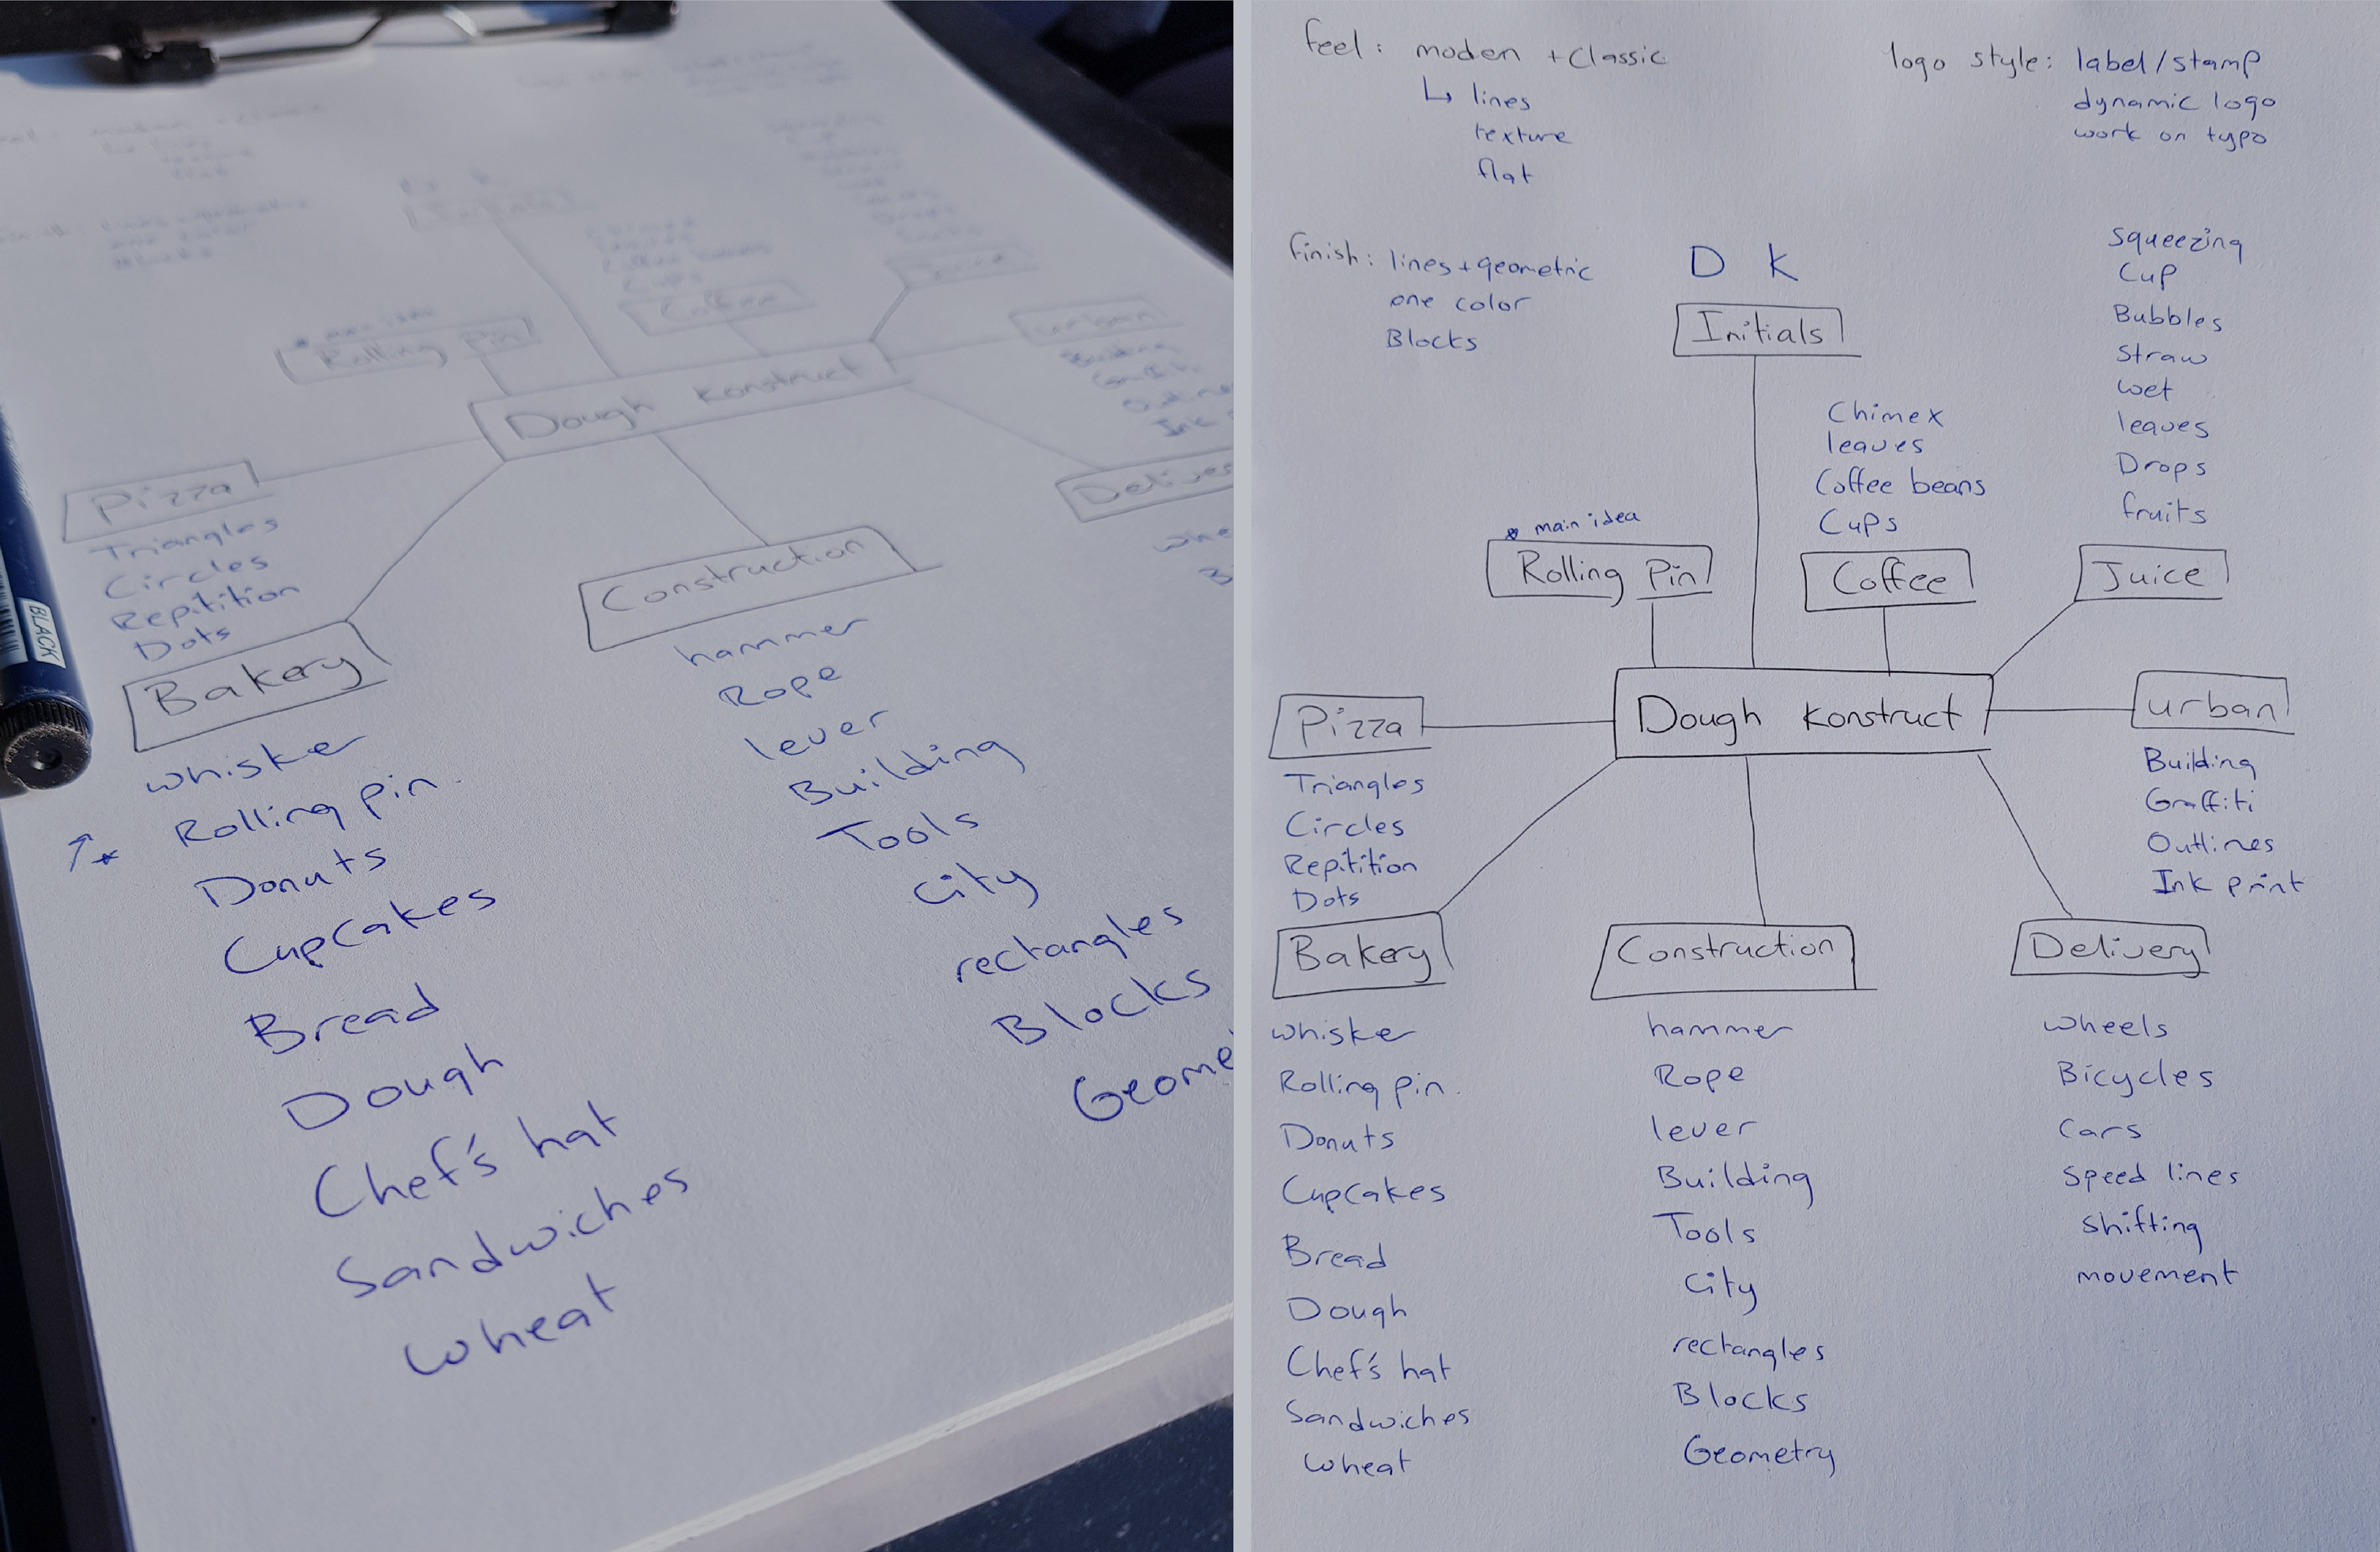 Rolling Pin
Coffee
Juice
urban
Dough Konstruct
Pizza
Triangles
Circles
Repitition
Dots
BLACK
Construction
Bakery
whiske
Rolling pin.
Donuts
Cupcakes
Bread
Dough
Chef's hat
Sandwiches
wheat
hammer
Rope
lever
Building
Tools
City
rectangles
Blocks
feel: moden + Classic
↳ lines
texture
flat
logo style: label/stamp
dynamic logo
work on typo
finish: lines + geometric
one color
Blocks
D K
Initials
Chimex
leaves
Coffee beans
Cups
Coffee
squeezing
Cup
Bubbles
straw
wet
leaves
Drops
fruits
Juice
* main idea
Rolling Pin
Dough Konstruct
Pizza
Triangles
Circles
Repitition
Dots
urban
Building
Graffiti
Outlines
Ink print
Bakery
whiske
Rolling pin.
Donuts
Cupcakes
Bread
Dough
Chef's hat
Sandwiches
wheat
Construction
hammer
Rope
lever
Building
Tools
City
rectangles
Blocks
Geometry
Delivery
wheels
Bicycles
Cars
speed lines
shifting
movement